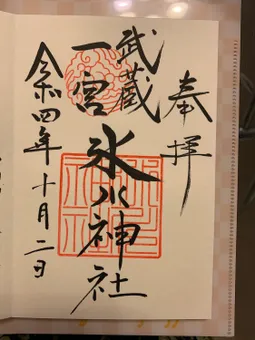 奉拝
武蔵
一宮
氷川神社
令和四年十月二日